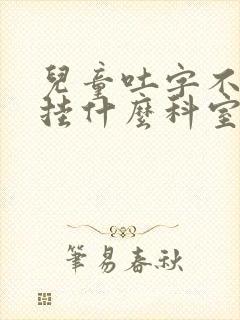 兒童吐字不
挂什麼科室
筆易春秋